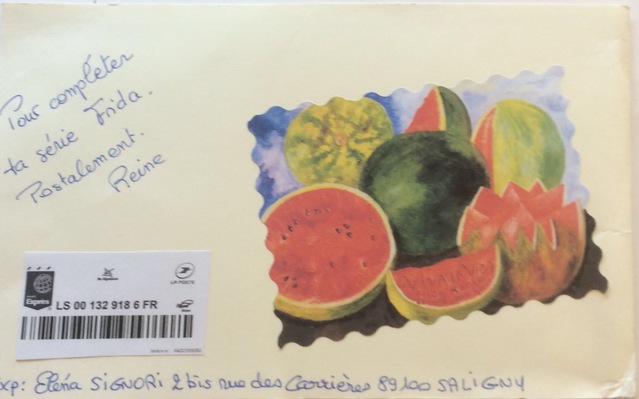 Pour compléter
ta série Frida.
Postalement.
Reine
VIVA LA VIDA
LA POSTE
Exprès
LS 00 132 918 6 FR
Exp: Elena SIGNORI 2 bis rue des Carrières 89100 SALIGNY